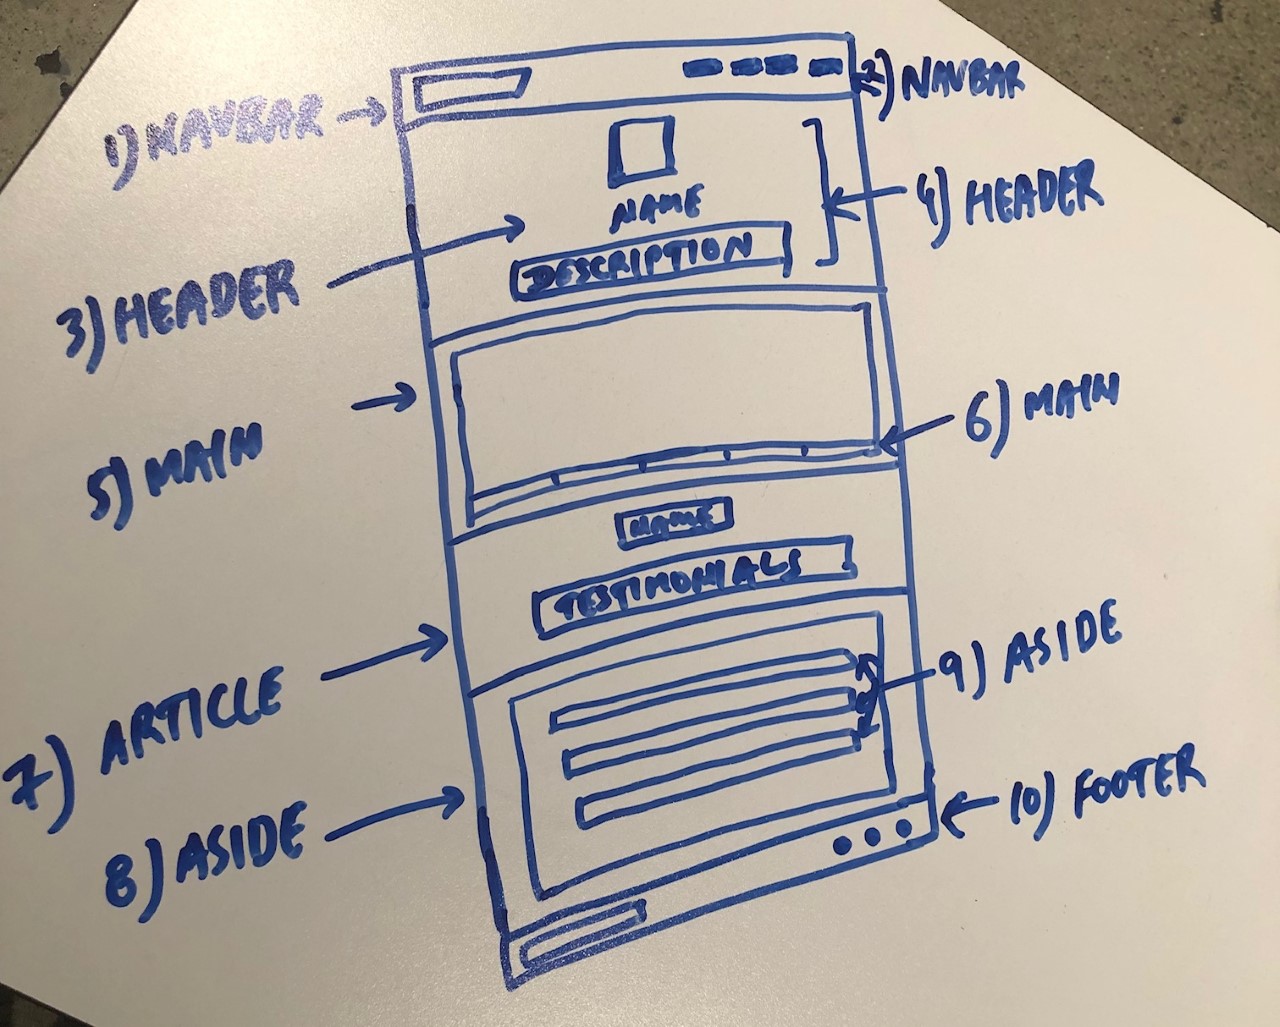 1) NAVBAR
2) NAVBAR
NAME
DESCRIPTION
3) HEADER
4) HEADER
5) MAIN
6) MAIN
NAME
TESTIMONIALS
7) ARTICLE
8) ASIDE
9) ASIDE
10) FOOTER